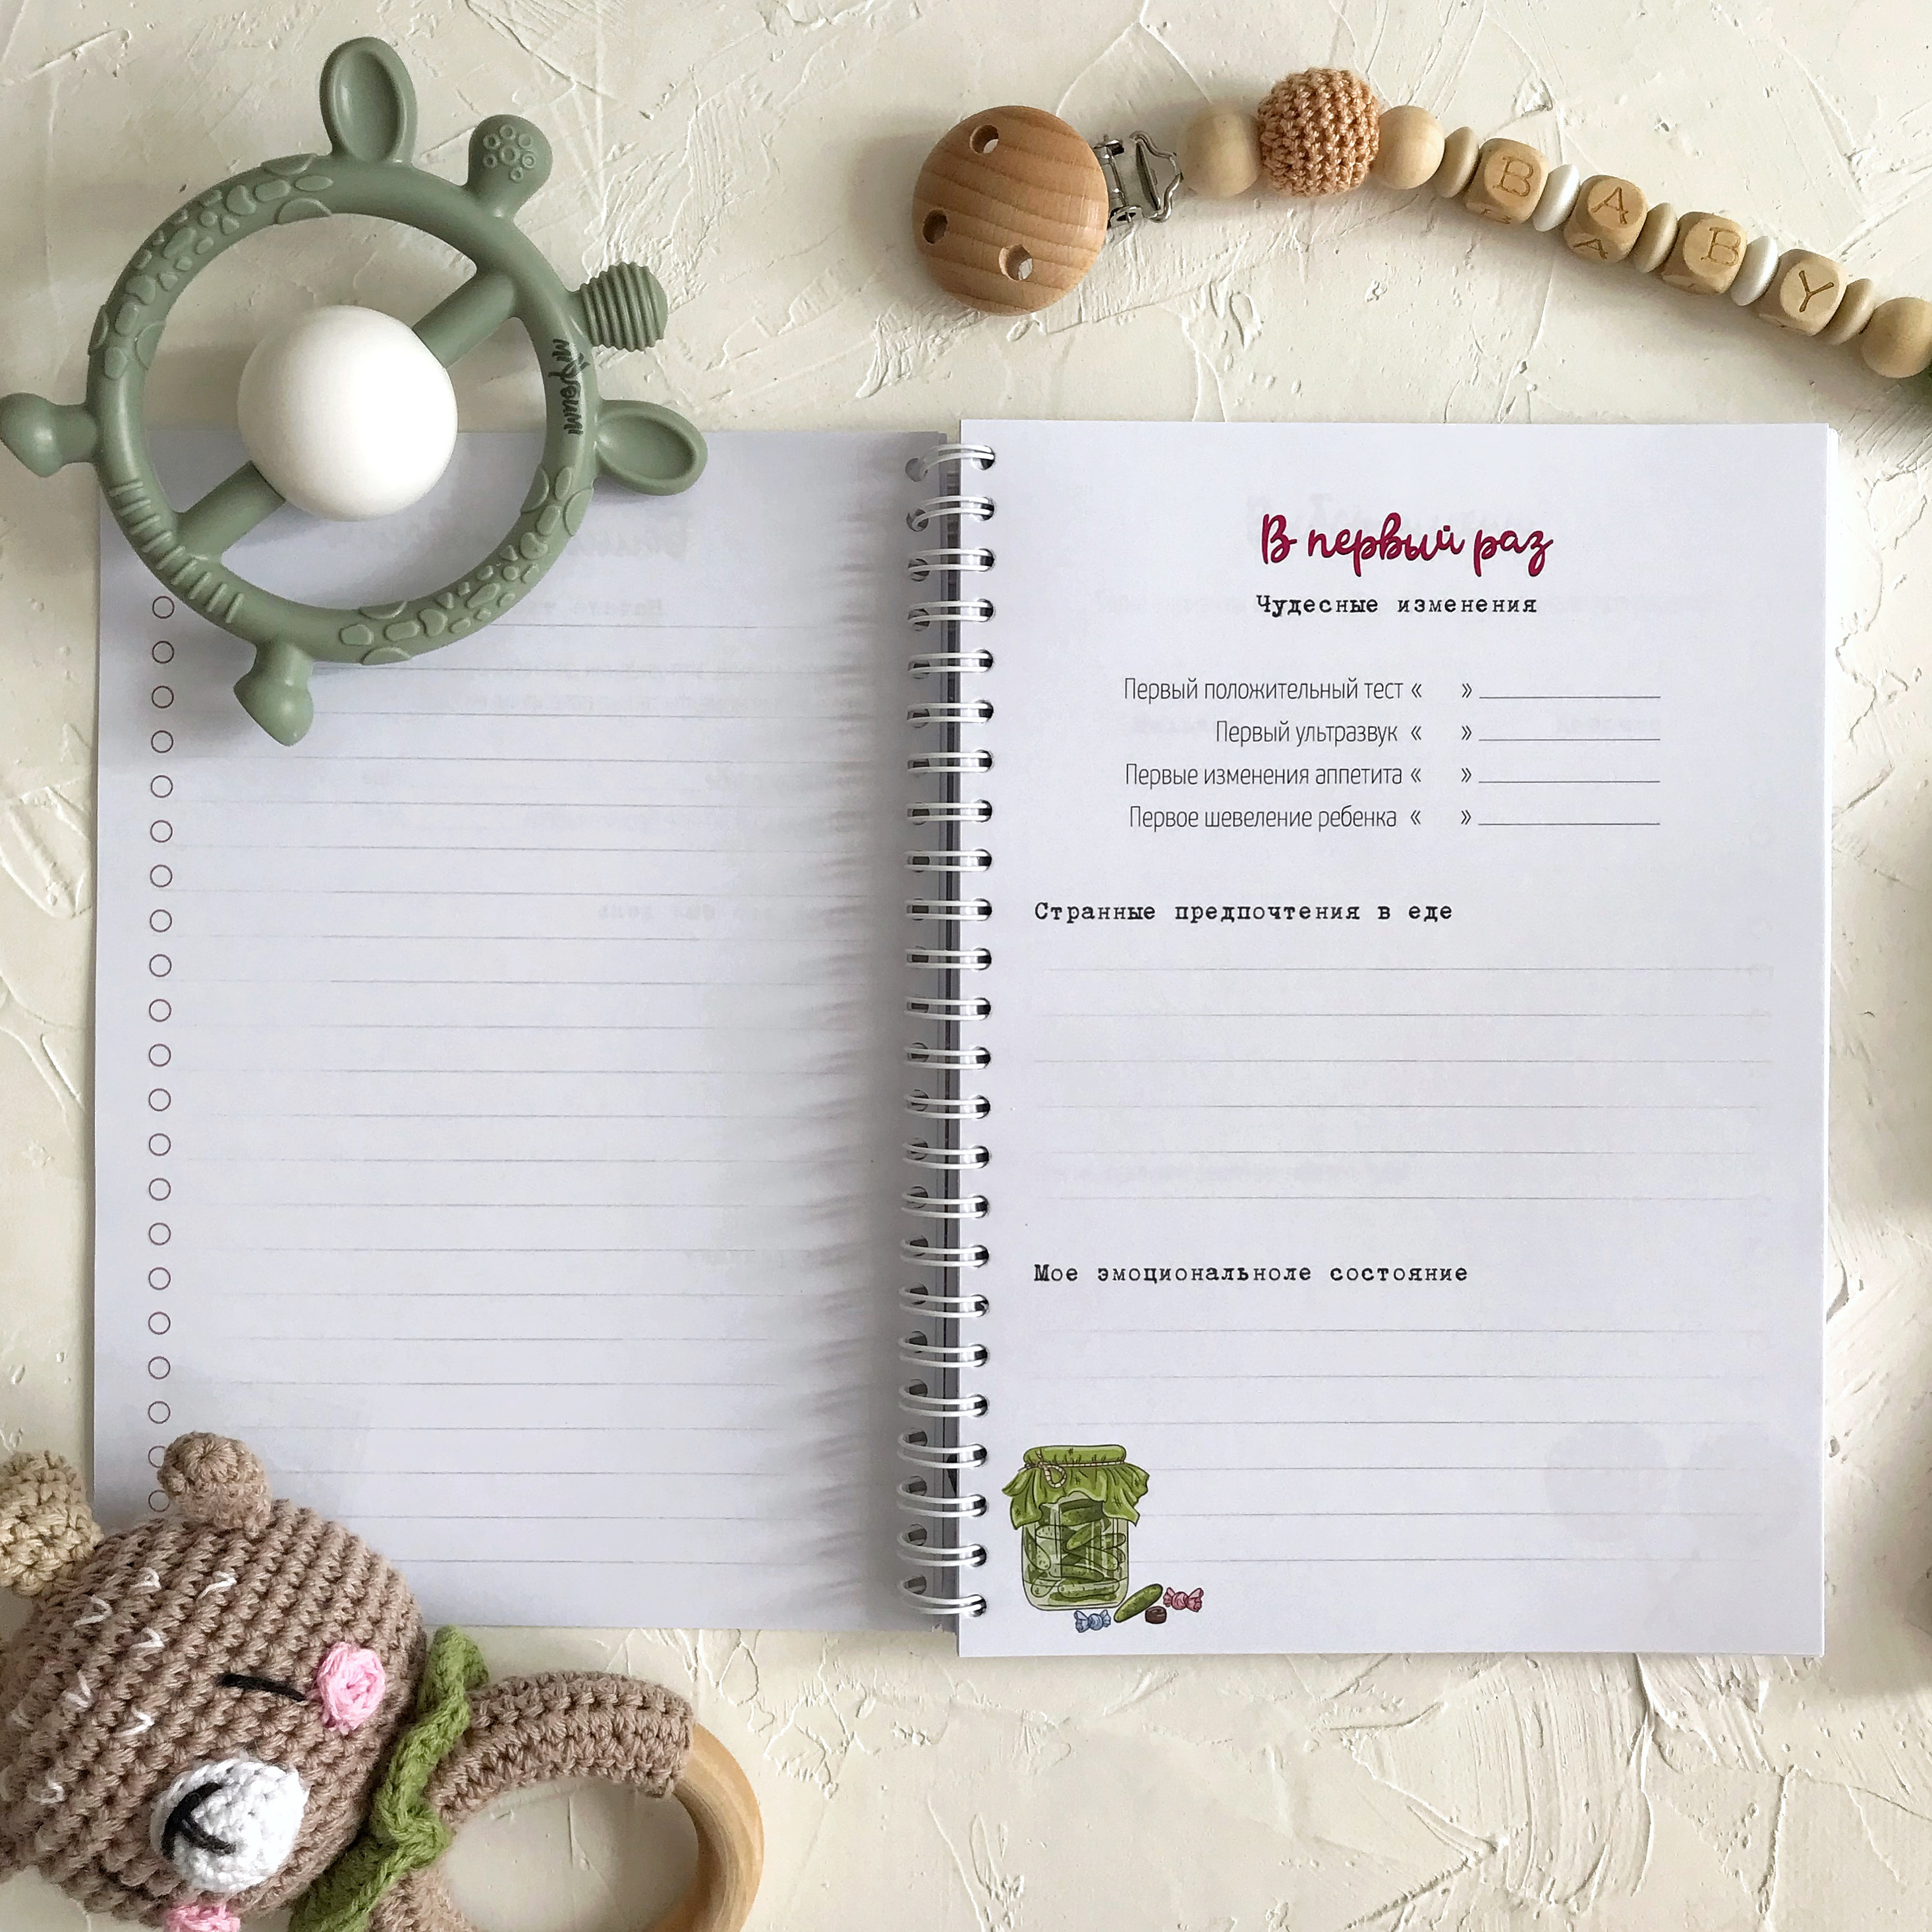 BABY
В первый раз
Чудесные изменения
Первый положительный тест « » ____________
Первый ультразвук « » ____________
Первые изменения аппетита « » ____________
Первое шевеление ребенка « » ____________
Странные предпочтения в еде
Мое эмоциональноле состояние